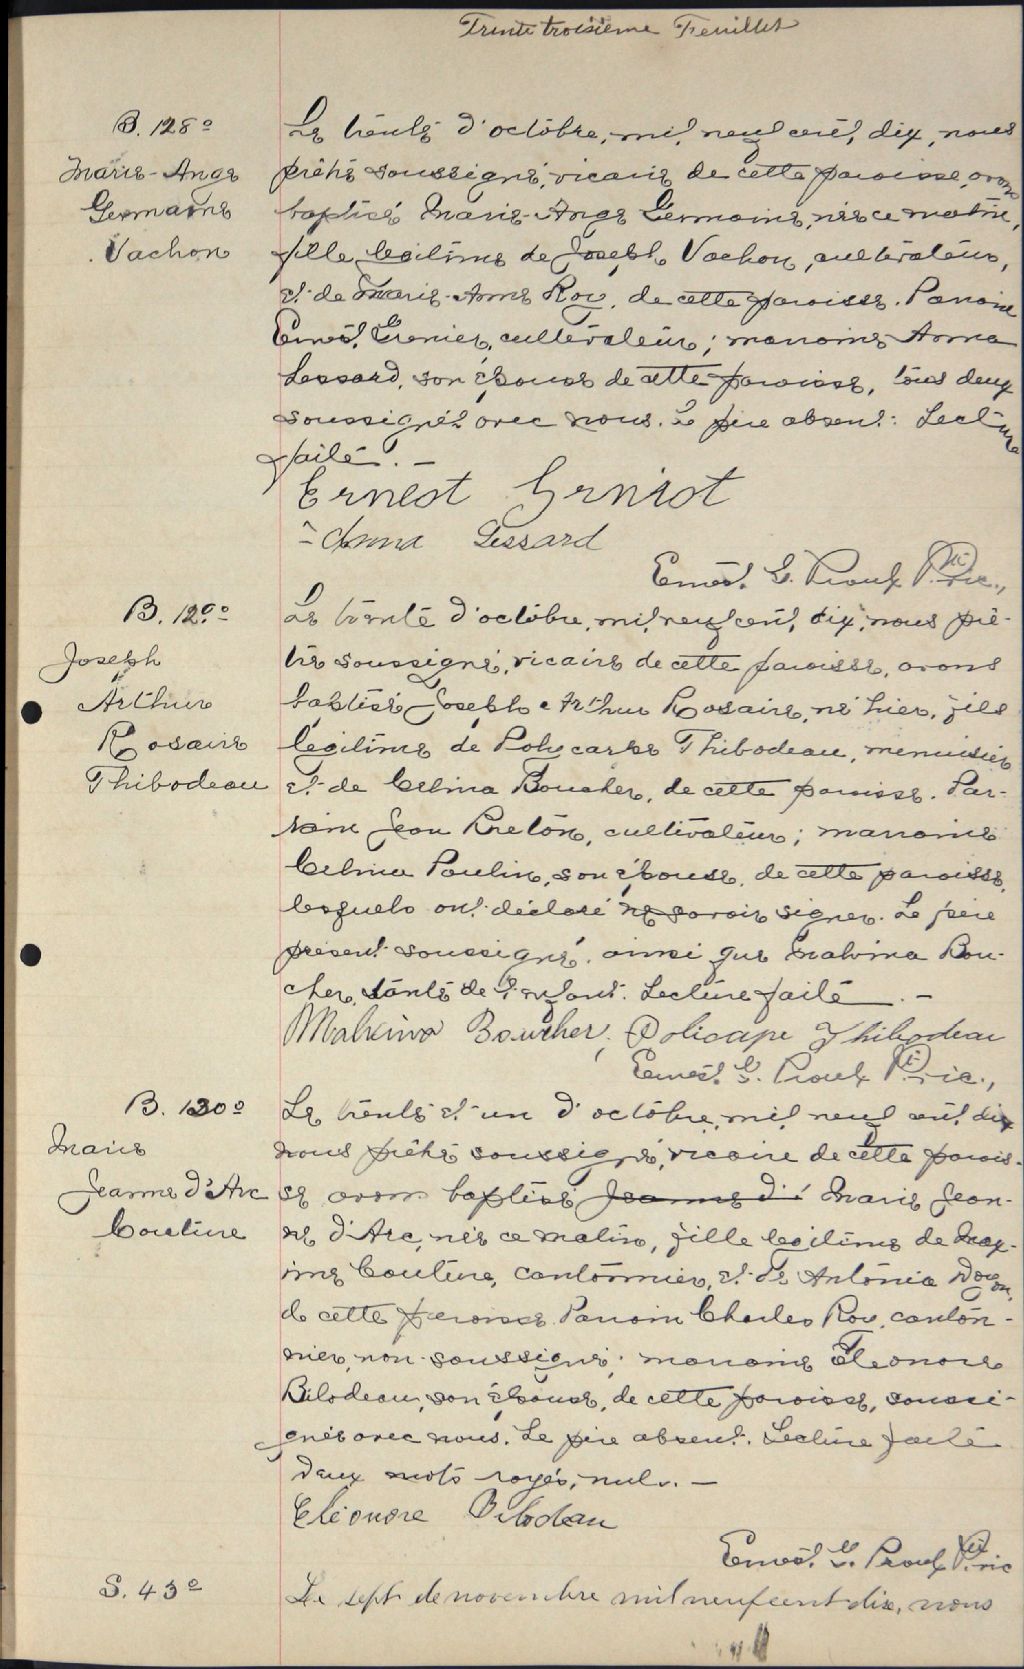 Trente troisième Feuillet
B. 128º
Marie-Ange
Germaine
Vachon
Le trente d'octobre, mil neuf cent dix, nous
prêtre soussigné, vicaire de cette paroisse, avons
baptisé Marie-Ange Germaine, née ce matin,
fille légitime de Joseph Vachon, cultivateur,
et de Marie-Anne Roy, de cette paroisse. Parrain
Ernest Grenier, cultivateur; marraine Anna
Lessard, son épouse de cette paroisse, tous deux
soussignés avec nous. Le père absent. Lecture
faite. —
Ernest
Anna Lessard
Ernest G. Proulx Ptre Vic.,
B. 129º
Joseph
Arthur
Rosaire
Thibodeau
Le trente d'octobre, mil neuf cent dix, nous prê-
tre soussigné, vicaire de cette paroisse, avons
baptisé Joseph Arthur Rosaire, né hier, fils
légitime de Polycarpe Thibodeau, menuisier
et de Celina Boucher, de cette paroisse. Par-
rain Jean Breton, cultivateur; marraine
Celina Poulin, son épouse, de cette paroisse,
lesquels ont déclaré ne savoir signer. Le père
présent soussigné, ainsi que Malvina Bou-
cher, tante de l'enfant. Lecture faite. —
Malvina Boucher, Policape Thibodeau
Ernest G. Proulx Ptre Vic.,
B. 130º
Marie
Jeanne d'Arc
Couture
Le trente et un d'octobre, mil neuf cent dix
nous prêtre soussigné, vicaire de cette parois-
se avons baptisé Jeanne d' Marie Jean-
ne d'Arc, née ce matin, fille légitime de Max-
ime Couture, cantonnier, et de Antonia Doyon,
de cette paroisse. Parrain Charles Roy, canton-
nier, non soussigné; marraine Eléonore
Bilodeau, son épouse, de cette paroisse, soussi-
gnée avec nous. Le père absent. Lecture faite
Deux mots rayés, nuls. —
Eléonore Bilodeau
Ernest G. Proulx Ptre Vic
S. 43º
Le sept de novembre mil neuf cent dix, nous